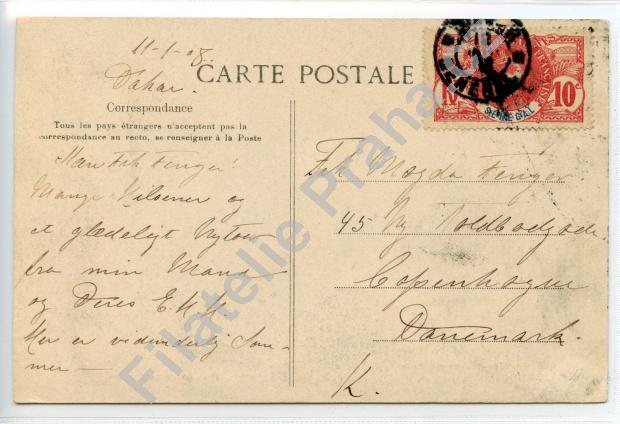 11-1-08.
Dakar.
CARTE POSTALE
Correspondance
Tous les pays étrangers n'acceptent pas la
correspondance au recto, se renseigner à la Poste
10
SÉNÉGAL
Mange Hilsener og
et glædeligt Nytaar
fra min Mand
og Deres E.H.H.
Her er vidunderlig Som-
mer —
Frk Magda Fenger
45 Ny Toldbodgade
Copenhague
Danemark.
K.
Filatelie Praha.cz